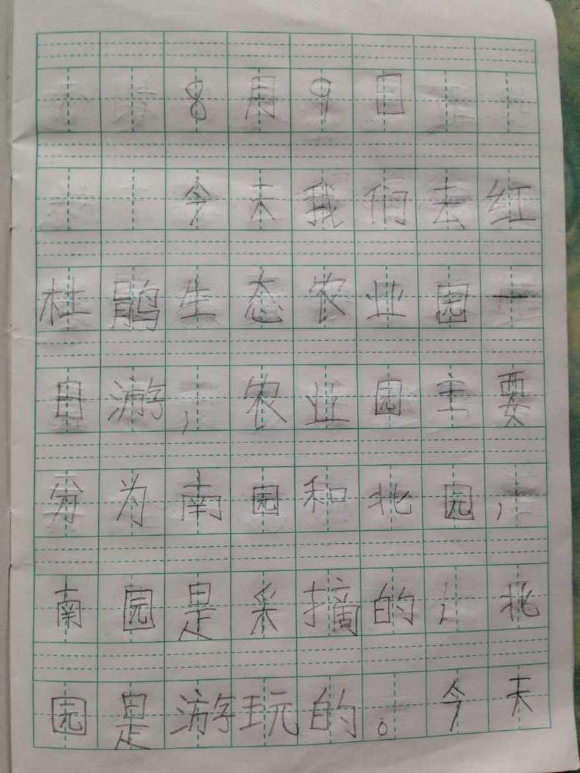 8月9日
今天我们去红
杜鹃生态农业园一
日游，农业园主要
分为南园和北园，
南园是采摘的，北
园是游玩的。今天